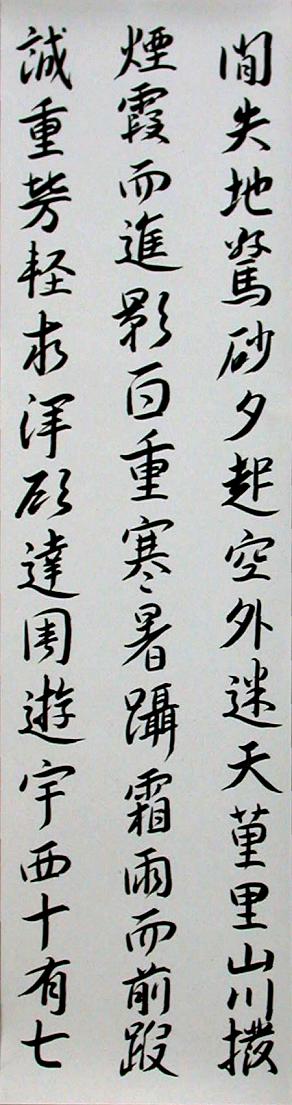 間失地驚砂夕起空外迷天萬里山川撥
煙霞而進影百重寒暑躡霜雨而前蹤
誠重勞輕求深願達周遊宇西十有七